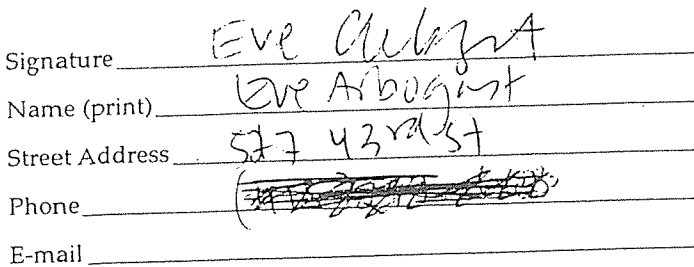 Signature Eve Arbogast
Name (print) Eve Arbogast
Street Address 577 43rd St
Phone
E-mail